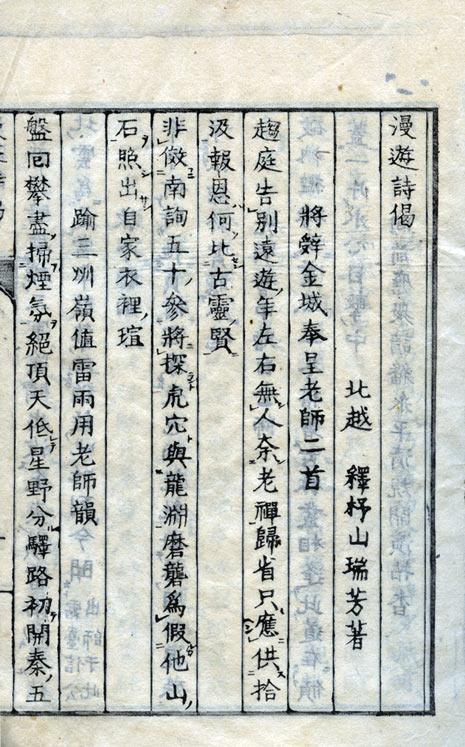 漫遊詩偈
北越 釋杼山瑞芳著
將辤金城奉呈老師二首
趨庭告別遠遊年左右無人奈老禪歸省只應供拾
汲報恩何比古靈賢
非傚南詢五十參將探虎穴與龍淵磨礱爲假他山
石照出自家衣裡瑄
踰三州嶺值雷雨用老師韻
盤回攀盡掃煙氛絕頂天低星野分驛路初開秦五